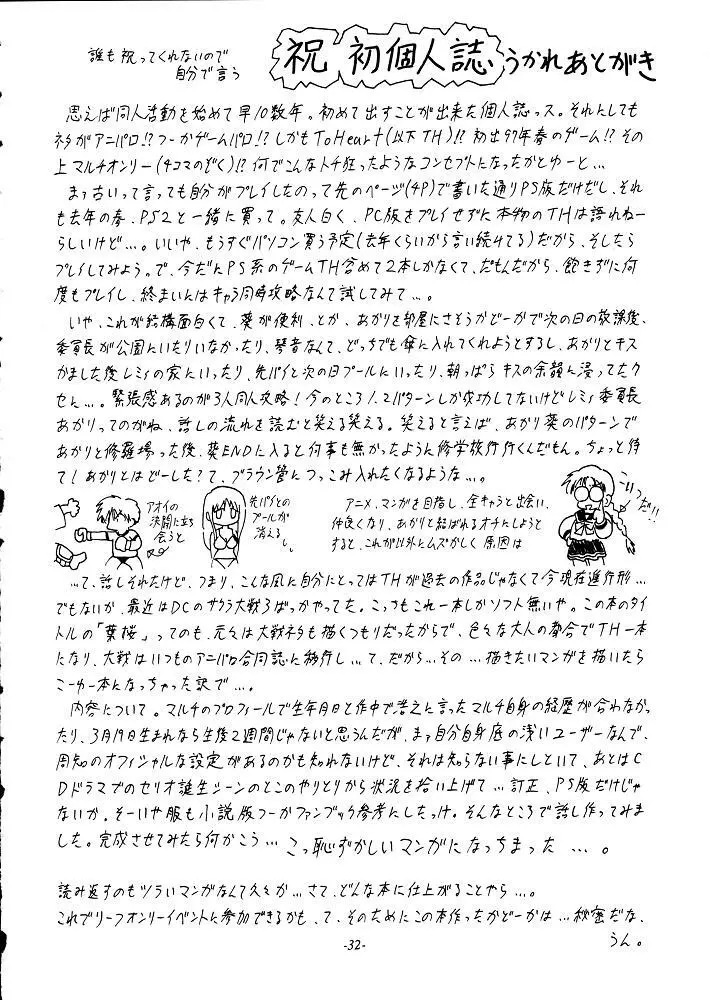 誰も祝ってくれないので
自分で言う
祝 初個人誌 うかれあとがき
思えば同人活動を始めて早10数年。初めて出すことが出来た個人誌っス。それにしても
ネタがアニパロ!?つーかゲームパロ!?しかもToHeart(以下TH)!?初出97年春のゲーム!?その
上マルチオンリー(4コマのぞく)!?何でこんなトチ狂ったようなコンセプトになったかとゆーと…
まっ古いって言っても自分がプレイしたのって先のページ(4P)で書いた通りPS版だけだし、それ
も去年の春、PS2と一緒に買って。友人曰く、PC版をプレイせずに本物のTHは語れねー
らしいけど…。いいや、もうすぐパソコン買う予定(去年くらいから言い続けてる)だから、そしたら
プレイしてみよう。で、今だにPS系のゲームTH含めて2本しかなくて、だもんだから、飽きずに何
度もプレイし、終まいにはキャラ同時攻略なんて試してみて…。
いや、これが結構面白くて、葵が便利、とか、あかりを部屋にさそうかどーかで次の日の放課後、
委員長が公園にいたりいなかったり、琴音なんて、どっちでも傘に入れてくれようとするし、あかりとキス
かました後レミィの家にいったり、先パイと次の日プールにいったり、朝っぱらキスの余韻に浸ってたク
セに…。緊張感あるのが3人同人攻略!今のところ1、2パターンしか成功してないけどレミィ委員長
あかりってのがね、話しの流れを読むと笑える笑える。笑えると言えば、あかり葵のパターンで
あかりと修羅場った後、葵ENDに入ると何事も無かったように修学旅行行くんだもん。ちょっと待
て!あかりとはどーした?て、ブラウン管につっこみ入れたくなるような…。
アオイの
決闘に立ち
会うと
先パイとの
プールが
消えるし。
アニメ、マンガを目指し、全キャラと出会い、
仲良くなり、あかりと結ばれるオチにしようと
すると、これが以外にムズかしく原因は
だ!!
…て、話しそれたけど、つまり、こんな風に自分にとってはTHが過去の作品じゃなくて今現在進行形…
でもないか、最近はDCのサクラ大戦3ばっかやってた。こっちもこれ一本しかソフト無いや。この本のタイ
トルの「葉桜」ってのも、元々は大戦ネタも描くつもりだったからで、色々な大人の都合でTH一本
になり、大戦はいつものアニパロ合同誌に移行し…て、だから…その…描きたいマンガを描いたら
こーゆー本になっちゃった訳で…。
内容について。マルチのプロフィールで生年月日と作中で浩之に言ったマルチ自身の経歴が合わなか
ったり、3月19日生まれなら生後2週間じゃないと思うんだが、まっ自分自身底の浅いユーザーなんで、
周知のオフィシャルな設定があるのかも知れないけど、それは知らない事にしといて、あとはC
Dドラマでのセリオ誕生シーンのとこのやりとりから状況を拾い上げて…訂正、PS版だけじゃ
ないか。そーいや服も小説版つーかファンブック参考にしたっけ。そんなところで話し作ってみま
した。完成させてみたら何かこう…こっ恥ずかしいマンガになっちまった…。
読み返すのもツラいマンガなんて久々か…さて、どんな本に仕上がることやら…。
これでリーフオンリーイベントに参加できるかも、て、そのためにこの本作ったかどーかは…秘密だな、
うん。
-32-